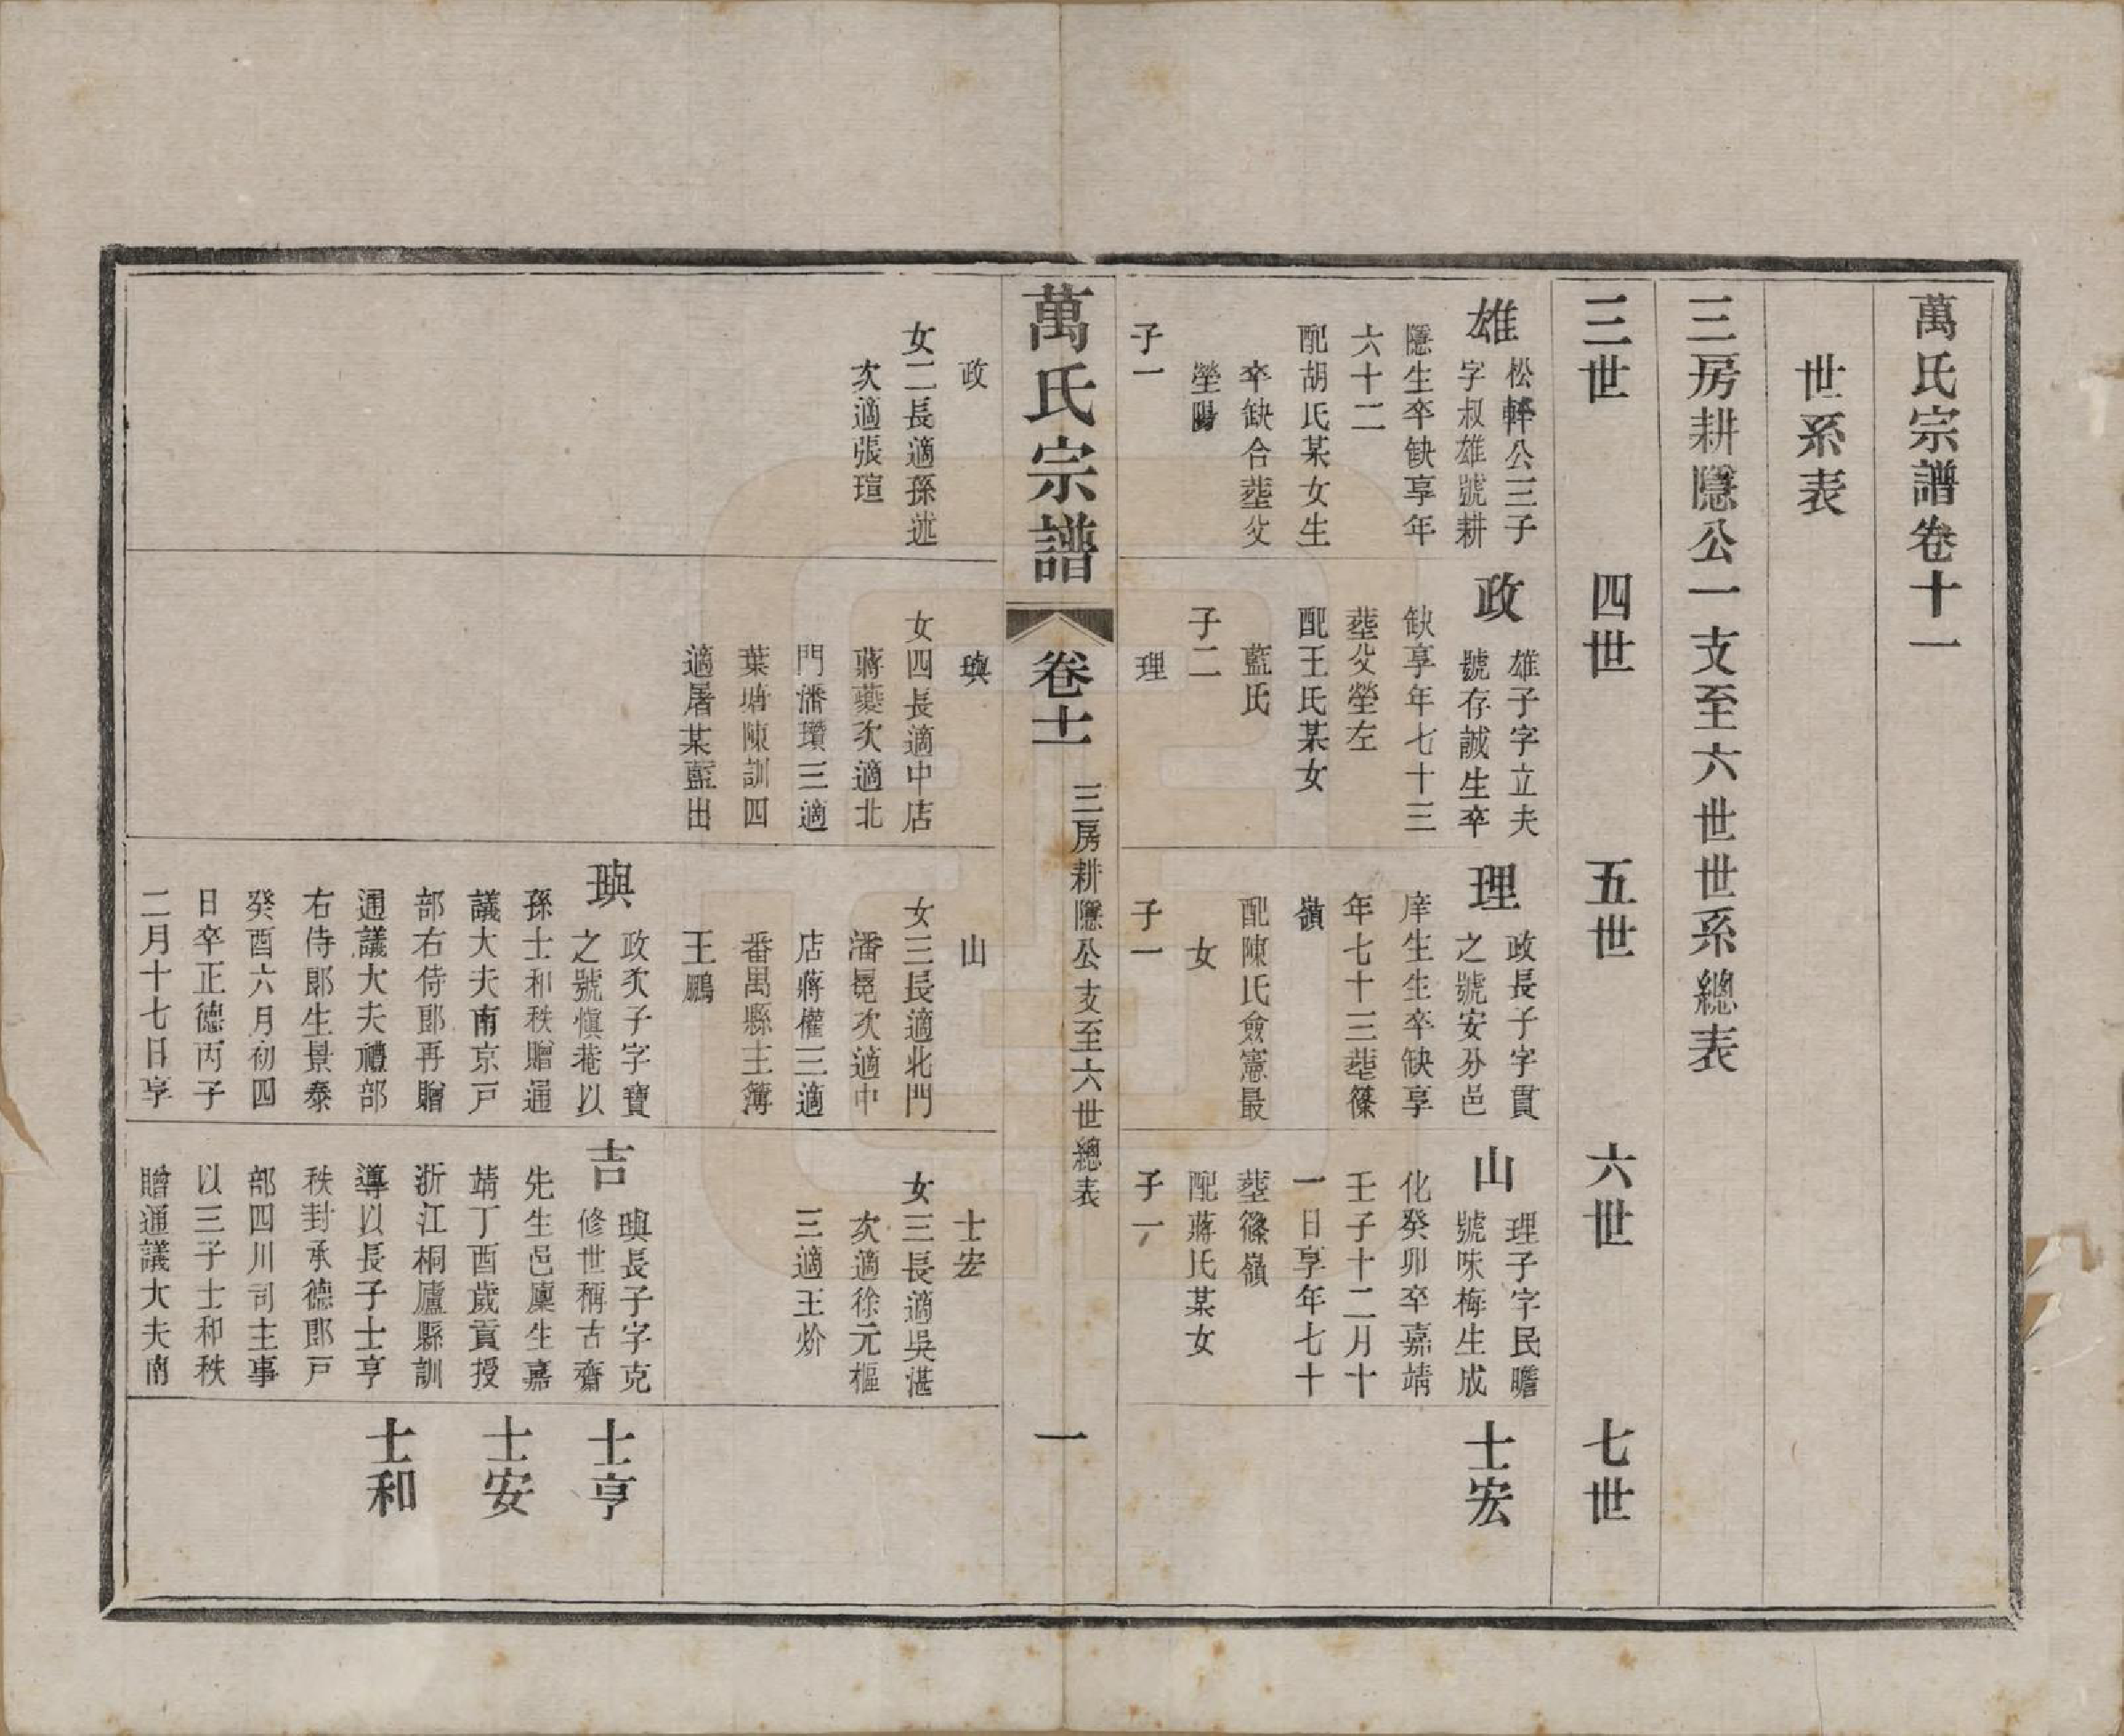 萬氏宗譜卷十一
世系表
三房耕隱公一支至六世世系總表
三世
四世
五世
六世
七世
雄
松軒公三子
字叔雄號耕
隱生卒缺享年
六十二
配胡氏某女生
卒缺合塟父
塋陽
子一
政
雄子字立夫
號存誠生卒
缺享年七十三
塟父塋左
配王氏某女
藍氏
子二
理
理
政長子字貫
之號安分邑
庠生生卒缺享
年七十三塟篠
嶺
配陳氏僉憲最
女
子一
山
理子字民瞻
號味梅生成
化癸卯卒嘉靖
壬子十二月十
一日享年七十
塟篠嶺
配蔣氏某女
子一
士宏
萬氏宗譜
卷十一
三房耕隱公支至六世總表
一
政
女二長適孫述
次適張瑄
璵
女四長適中店
蔣䕫次適北
門潘瓚三適
葉塘陳訓四
適屠某藍出
山
女三長適北門
潘冕次適中
店蔣權三適
番禺縣主簿
王鵬
士宏
女三長適吳湛
次適徐元樞
三適王炌
璵
政次子字寶
之號愼菴以
孫士和秩贈通
議大夫南京戸
部右侍郎再贈
通議大夫禮部
右侍郎生景泰
癸酉六月初四
日卒正德丙子
二月十七日享
吉
璵長子字克
修世稱古齋
先生邑廩生嘉
靖丁酉歲貢授
浙江桐廬縣訓
導以長子士亨
秩封承德郎戸
部四川司主事
以三子士和秩
贈通議大夫南
士亨
士安
士和